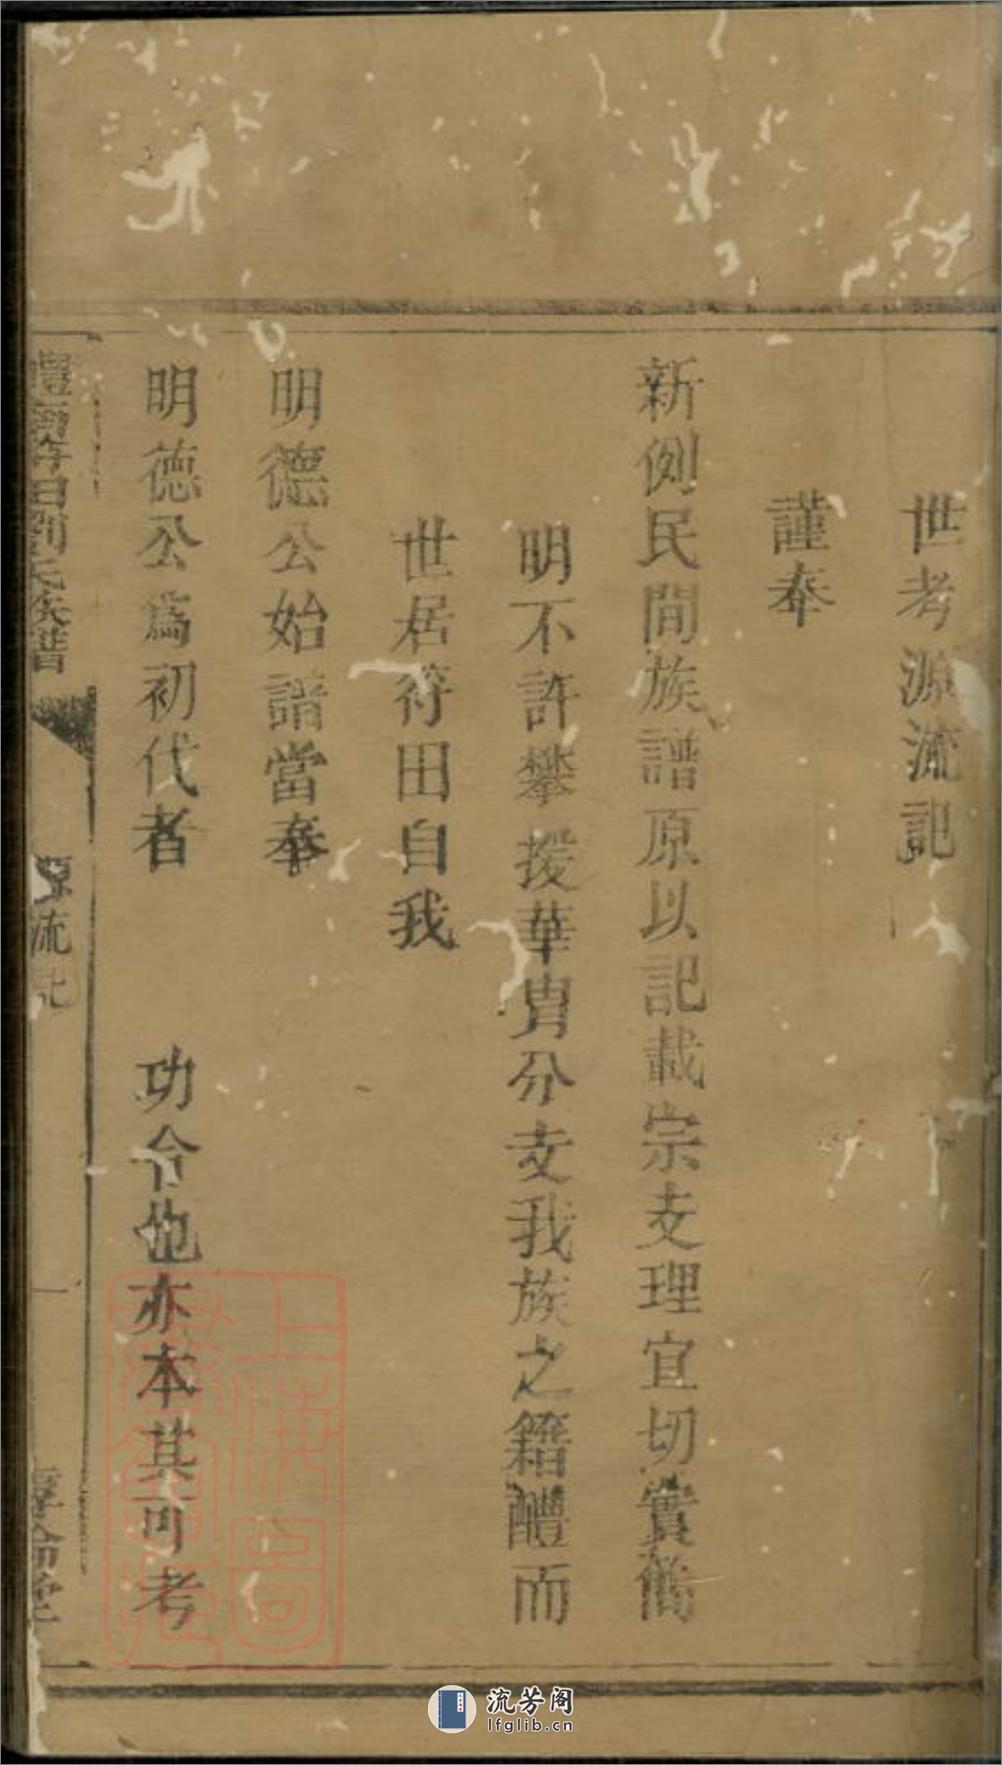 世考源流記
謹奉
新例民間族譜原以記載宗支理宜切實儁
明不許攀援華胄分支我族之籍醴而
世居符田自我
明德公始譜當奉
明德公為初代者 功令也亦本其可考
符田劉氏族譜
源流記
一
上海圖書館藏
流芳阁
lfglib.cn